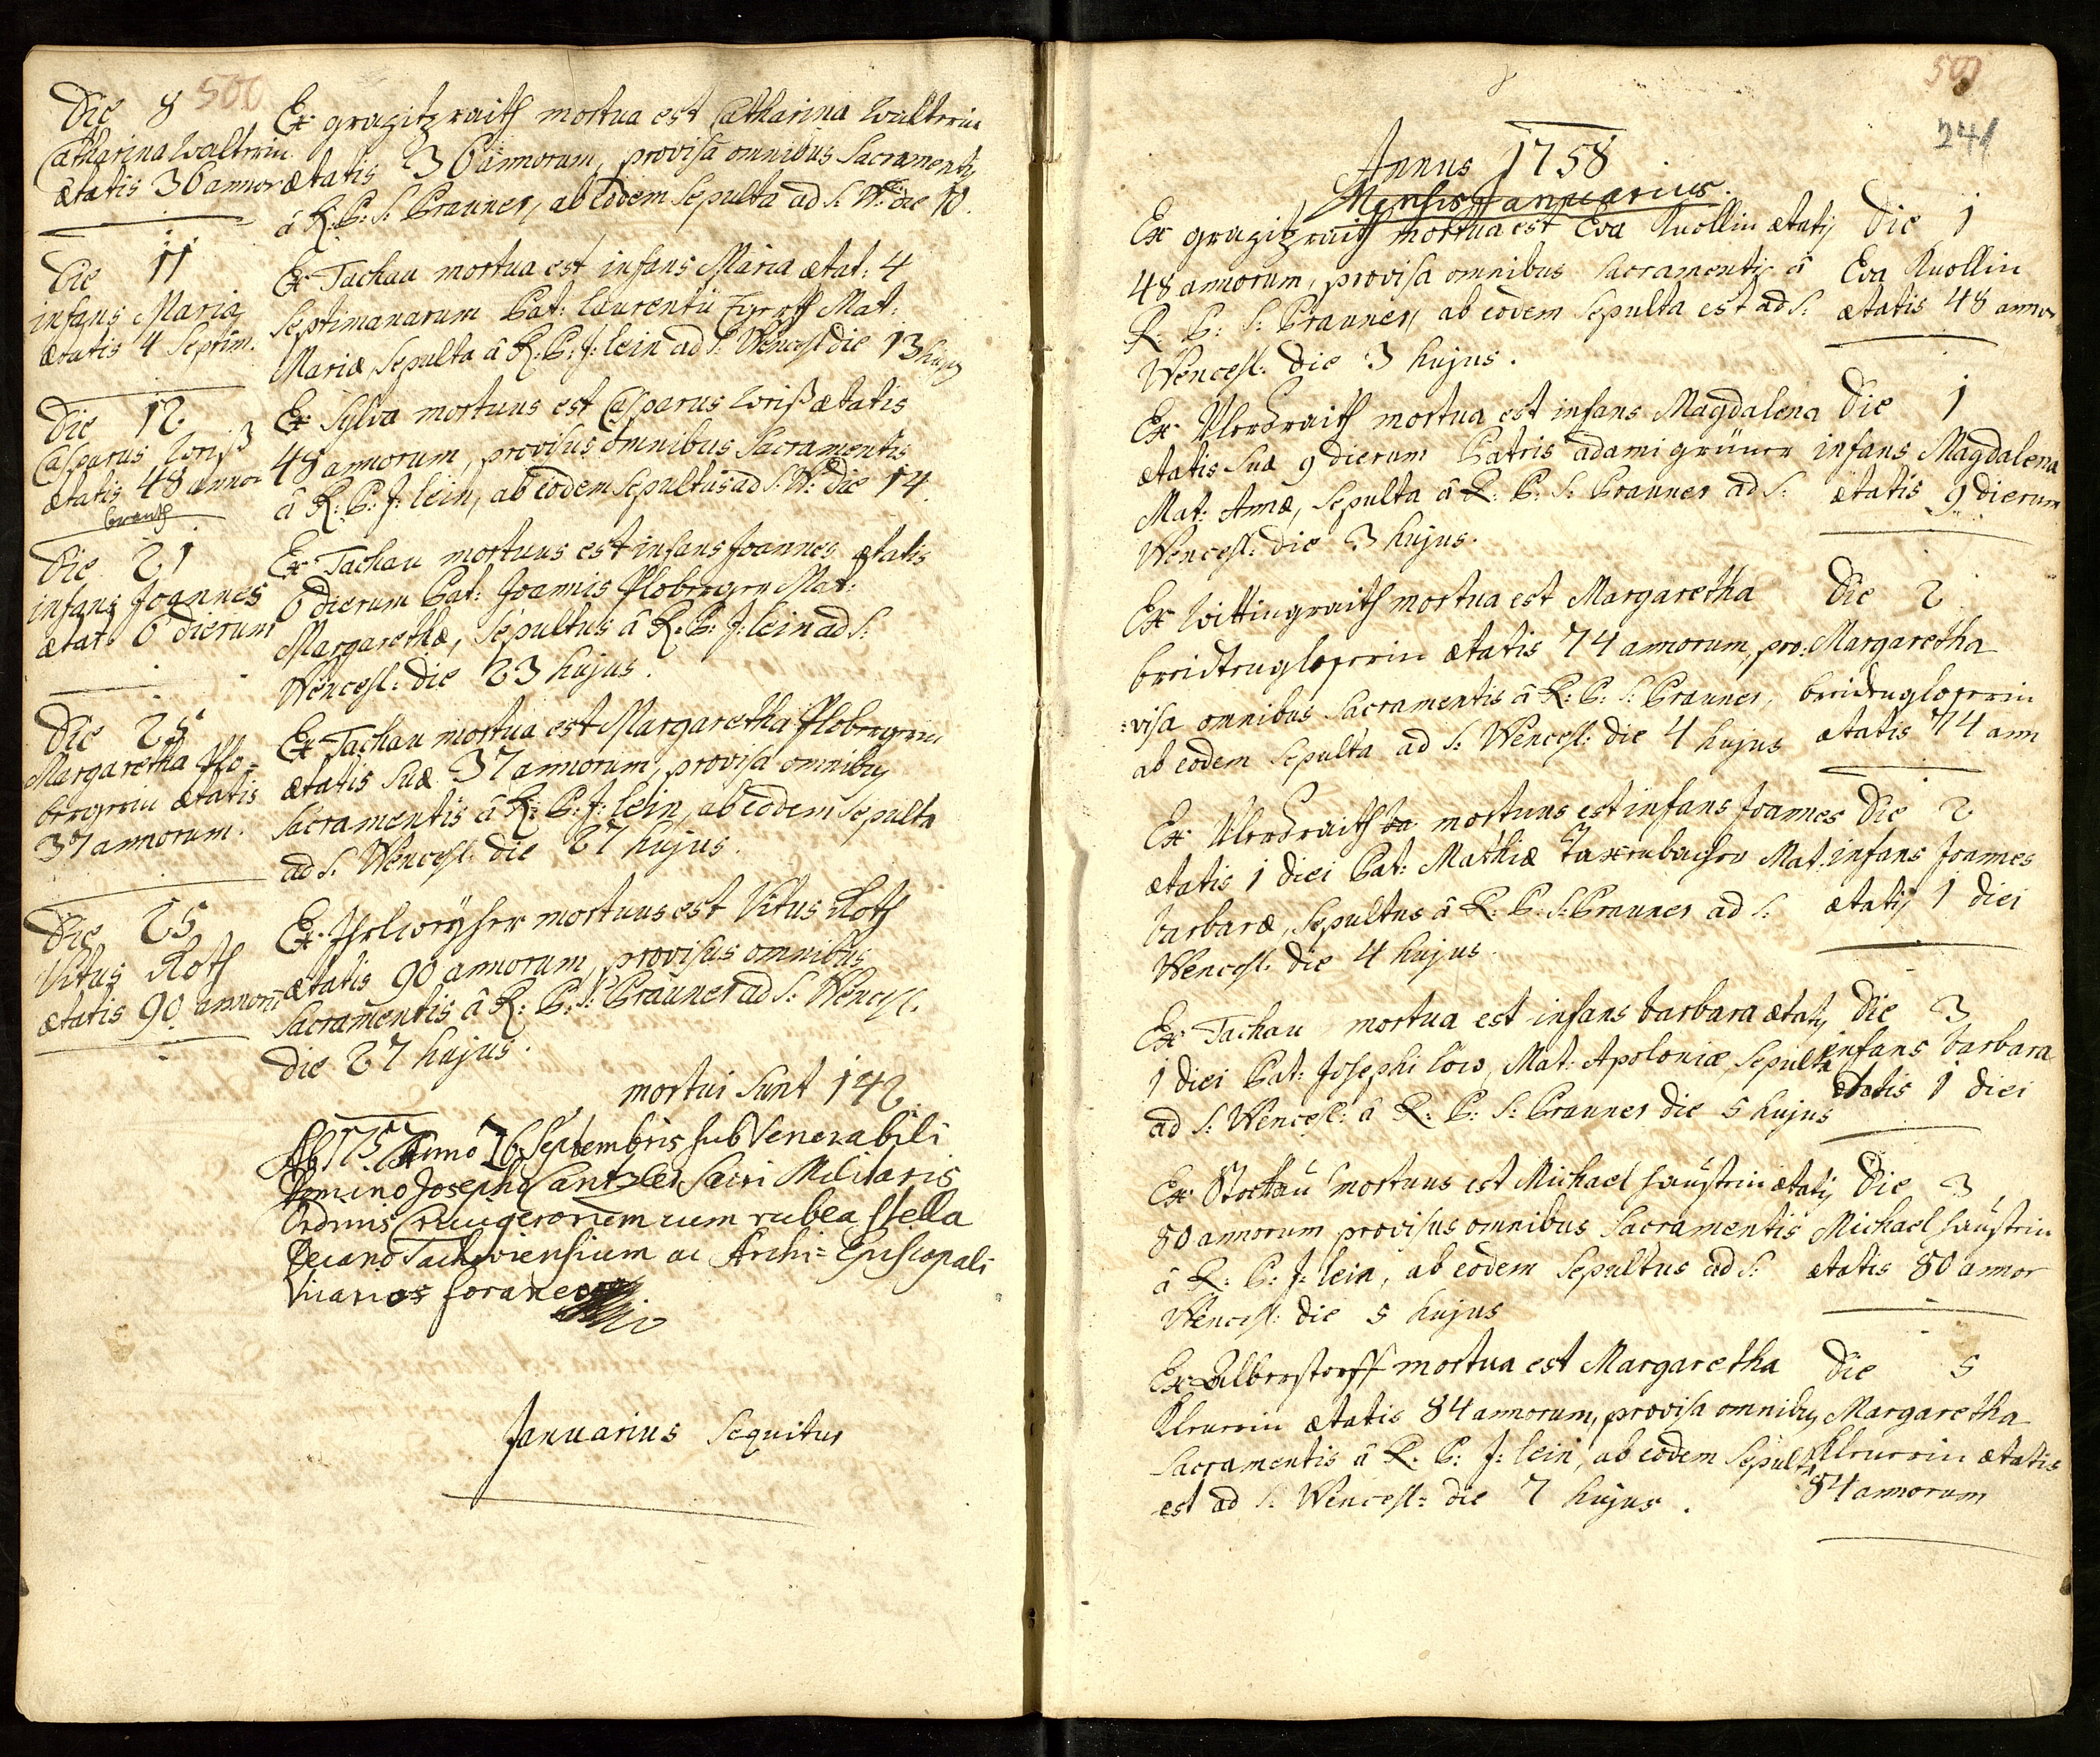 500
Die 8
Catharina Walterin
ætatis 36 annor
Ex grazitzraith mortua est Catharina Walterin
ætatis 36 annorum, provisa omnibus Sacramentis
â R: P: S: Prauner, ab eodem Sepulta ad S: W: die 10.
Die 11
infans Maria
ætatis 4 Septim:
Ex Tachau mortua est infans Maria ætat: 4
Septimanarum Pat: Laurentii Mat:
Mariæ, Sepulta â R: P: J: lein ad S: Wencesl die 13 hujus
Die 12
Casparus Weiß
ætatis 48 annor
Ex Sylva mortuus est Casparus Weiß ætatis
48 annorum, provisus omnibus Sacramentis
â R: P: J: lein, ab eodem Sepultus ad S: W: die 14.
Die 21
infans Joannes
ætat: 6 dierum
Ex Tachau mortuus est infans Joannes ætatis
6 dierum Pat: Joannis Ploberger Mat:
Margarethæ, Sepultus â R: P: J: lein ad S:
Wencesl: die 23 hujus.
Die 25
Margaretha Plo=
bergerin ætatis
37 annorum.
Ex Tachau mortua est Margaretha Plobergerin
ætatis Suæ 37 annorum, provisa omnibus
Sacramentis â R: P: J: lein, ab eodem Sepulta
ad S: Wencesl: die 27 hujus.
Die 25
Vitus Roth
ætatis 90 annorū
Ex mortuus est Vitus Roth
ætatis 90 annorum, provisus omnibus
Sacramentis â R: P: S: Prauner ad S: Wencesl.
die 27 hujus.
mortui Sunt 142.
Ab 1757 Anno 16 Septembris sub Venerabili
Domino Josepho Cantzler Sacri Militaris
Ordinis Crucigerorum cum rubea stella
Decano Tachoviensium ac Archi=Episcopali
Vicarios foraneo
Januarius Sequitur
501
241
Annus 1758
Mensis Januarius.
Ex grazitzraith mortua est Eva Knollin ætatis
48 annorum, provisa omnibus Sacramentis â
R: P: S: Prauner, ab eodem Sepulta est ad S:
Wencesl: die 3 hujus.
Die 1
Eva Knollin
ætatis 48 annor
Ex mortua est infans Magdalena
ætatis Suæ 9 dierum Patris adami grüner
Mat: Annæ, Sepulta â R: P: S: Prauner ad S:
Wencesl: die 3 hujus.
Die 1
infans Magdalena
ætatis 9 dierum
Ex Wittingraith mortua est Margaretha
ætatis 74 annorum, pro:
=visa omnibus Sacramentis â R: P: S: Prauner,
ab eodem Sepulta ad S: Wencesl: die 4 hujus
Die 2
Margaretha
ætatis 74 ann
Ex mortuus est infans Joannes
ætatis 1 diei Pat: Mathiæ Mat:
barbaræ, Sepultus â R: P: S: Prauner ad S:
Wencesl: die 4 hujus.
Die 2
infans Joannes
ætatis 1 diei
Ex Tachau mortua est infans barbara ætatis
1 diei Pat: Josephi Löw, Mat: Apoloniæ, Sepulta
ad S: Wencesl: â R: P: S: Prauner die 5 hujus
Die 3
infans barbara
ætatis 1 diei
Ex Stockau mortuus est Michael ætatis
80 annorum provisus omnibus Sacramentis
â R: P: J: lein, ab eodem Sepultus ad S:
Wencesl: die 5 hujus
Die 3
Michael
ætatis 80 annor
Ex Alberstorff mortua est Margaretha
ætatis 84 annorum, provisa omnibus
Sacramentis â R: P: J: lein, ab eodem Sepulta
est ad S: Wencesl: die 7 hujus.
Die 5
Margaretha
ætatis
84 annorum